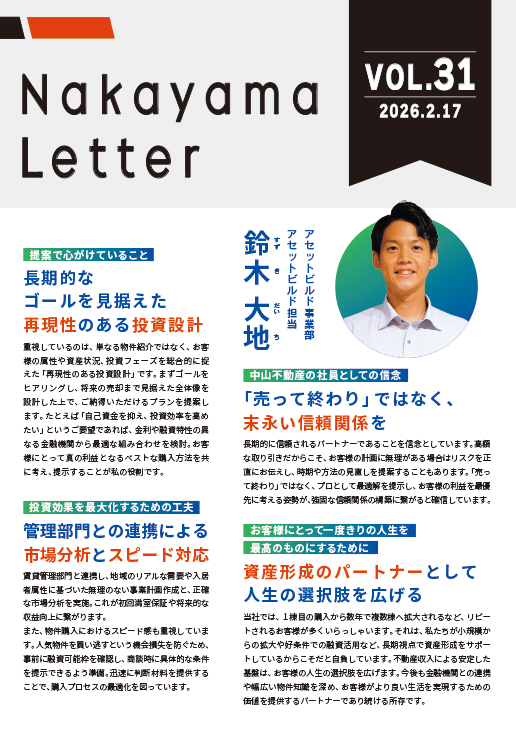 Nakayama
Letter
VOL.31
2026.2.17
アセットビルド事業部
アセットビルド担当
鈴木 大地
すず き だい ち
提案で心がけていること
長期的な
ゴールを見据えた
再現性のある投資設計
重視しているのは、単なる物件紹介ではなく、お客
様の属性や資産状況、投資フェーズを総合的に捉
えた「再現性のある投資設計」です。まずゴールを
ヒアリングし、将来の売却まで見据えた全体像を
設計した上で、ご納得いただけるプランを提案し
ます。たとえば「自己資金を抑え、投資効率を高め
たい」というご要望であれば、金利や融資特性の異
なる金融機関から最適な組み合わせを検討。お客
様にとって真の利益となるベストな購入方法を共
に考え、提示することが私の役割です。
投資効果を最大化するための工夫
管理部門との連携による
市場分析とスピード対応
賃貸管理部門と連携し、地域のリアルな需要や入居
者属性に基づいた無理のない事業計画作成と、正確
な市場分析を実施。これが初回満室保証や将来的な
収益向上に繋がります。
また、物件購入におけるスピード感も重視していま
す。人気物件を買い逃すという機会損失を防ぐため、
事前に融資可能枠を確認し、商談時に具体的な条件
を提示できるよう準備。迅速に判断材料を提供する
ことで、購入プロセスの最適化を図っています。
中山不動産の社員としての信念
「売って終わり」ではなく、
末永い信頼関係を
長期的に信頼されるパートナーであることを信念としています。高額
な取り引きだからこそ、お客様の計画に無理がある場合はリスクを正
直にお伝えし、時期や方法の見直しを提案することもあります。「売っ
て終わり」ではなく、プロとして最適解を提示し、お客様の利益を最優
先に考える姿勢が、強固な信頼関係の構築に繋がると確信しています。
お客様にとって一度きりの人生を
最高のものにするために
資産形成のパートナーとして
人生の選択肢を広げる
当社では、1棟目の購入から数年で複数棟へ拡大されるなど、リピー
トされるお客様が多くいらっしゃいます。それは、私たちが小規模か
らの拡大や好条件での融資活用など、長期視点で資産形成をサポー
トしているからこそだと自負しています。不動産収入による安定した
基盤は、お客様の人生の選択肢を広げます。今後も金融機関との連携
や幅広い物件知識を深め、お客様がより良い生活を実現するための
価値を提供するパートナーであり続ける所存です。